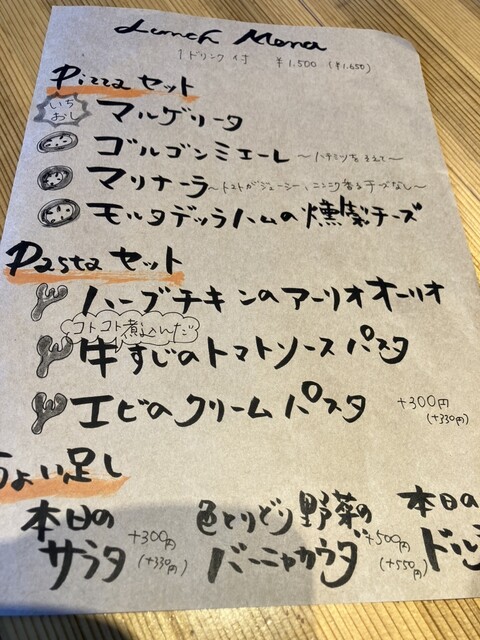 Lunch Menu
1ドリンク付 ¥1,500 (¥1,650)
Pizzaセット
いち
おし
マルゲリータ
ゴルゴンミエーレ 〜ハチミツをそえて〜
マリナーラ 〜トマトがジューシー、ニンニク香るチーズなし〜
モルタデッラハムの燻製チーズ
Pastaセット
ハーブチキンのアーリオオーリオ
コトコト煮込んだ
牛すじのトマトソースパスタ
エビのクリームパスタ +300円
(+330円)
ちょい足し
本日の
サラダ
+300円
(+330円)
色とりどり野菜の
バーニャカウダ
+500円
(+550円)
本日の
ドル